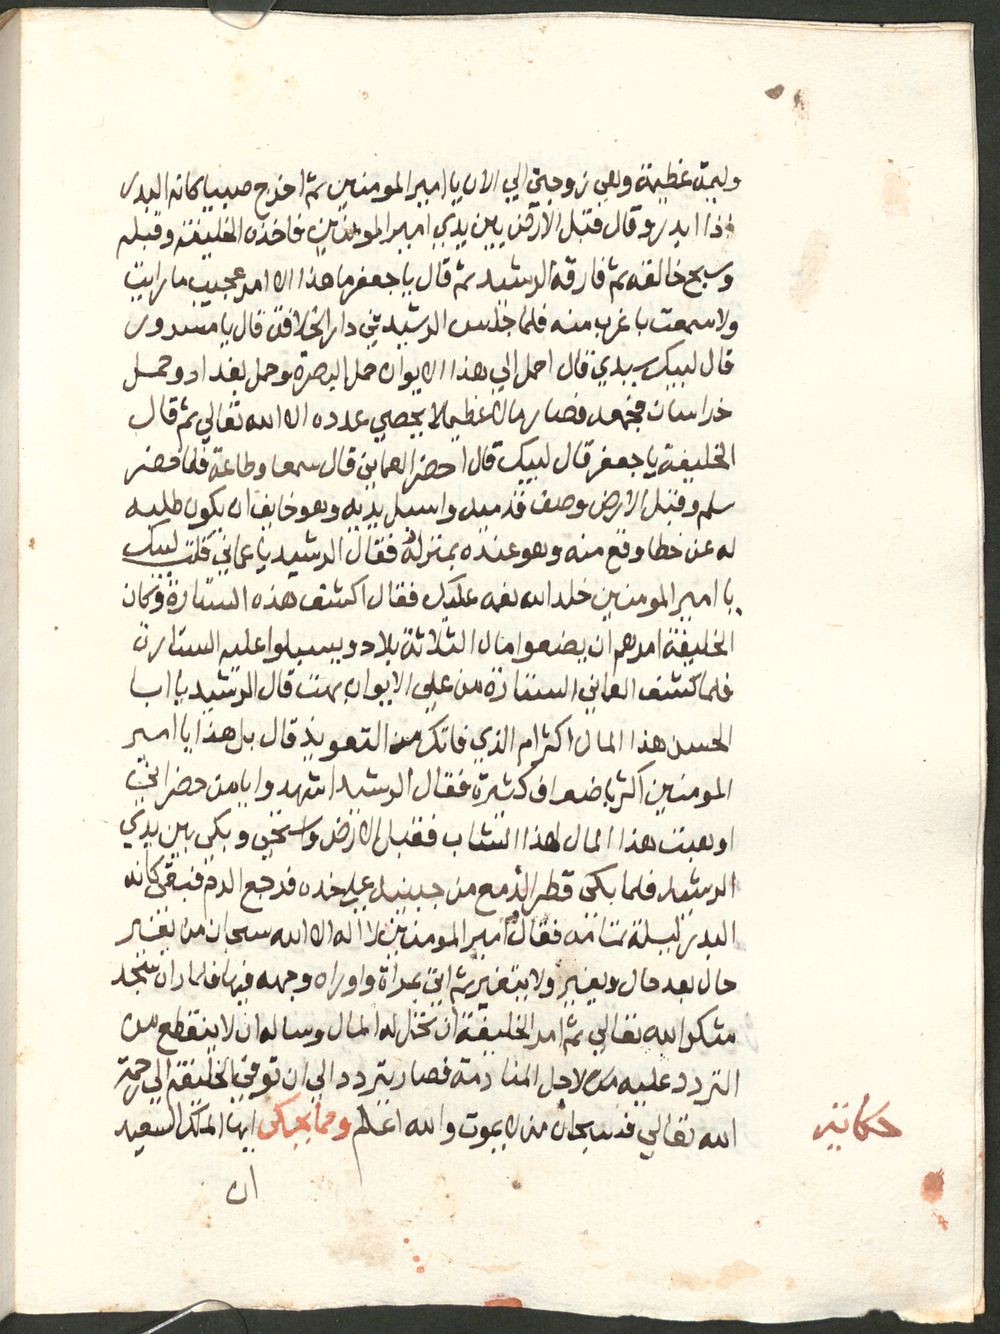 وليمة عظيمة وهي زوجتي الي الان يا امير المومنين ثم اخرج صبيا كانه البدر
اذا ابدر وقال قبل الارض بين يدي امير المومنين فاخذه الخليفة وقبله
وسبح خالقه ثم فارقه الرشيد ثم قال يا جعفر ما هذا الا امر عجيب ما رايت
ولا سمعت باغرب منه فلما جلس الرشيد في دار الخلافة قال يا مسرور
قال لبيك سيدي قال احمل الي هذا الايوان حمل البصرة وحمل بغداد وحمل
خراسان فجمعه فصار مالا عظيما لا يحصي عدده الا الله تعالي ثم قال
الخليفة يا جعفر قال لبيك قال احضر العماني قال سمعا وطاعة فلما حضر
سلم وقبل الارض وصف قدميه واسبل يديه وهو خايف ان يكون طلبه
له عن خطا وقع منه وهو عنده بمنزله فقال الرشيد يا عماني قلت لبيك
يا امير المومنين خلد الله نعمه عليك فقال اكشف هذه الستارة وكان
الخليفة امرهم ان يضعوا مال الثلاثة بلاد ويسبلوا عليه الستارة
فلما كشف العماني الستارة من علي الايوان بهت قال الرشيد يا ابا
الحسن هذا المال اكثر ام الذي فاتك من التعويذ قال بل هذا يا امير
المومنين اكثر باضعاف كثيرة فقال الرشيد اشهدوا يا من حضر اني
اوهبت هذا المال لهذا الشاب فقبل الارض واستحي وبكي بين يدي
الرشيد فلما بكي قطر الدمع من جبينه علي خده فرجع الدم فبقي كانه
البدر ليلة تمامه فقال امير المومنين لا اله الا الله سبحان من يغير
حال بعد حال ويغير ولا يتغير ثم اتي بمراة واوراه وجهه فيها فلما راه سجد
شكرا لله تعالي ثم امر الخليفة ان تحمل له المال وساله ان لا ينقطع من
التردد عليه من لاجل المنادمة فصار يتردد الي ان توفي الخليفة الي رحمة
الله تعالي فسبحان من لا يموت والله اعلم ومما يحكي ايها الملك السعيد
حكاية
ان